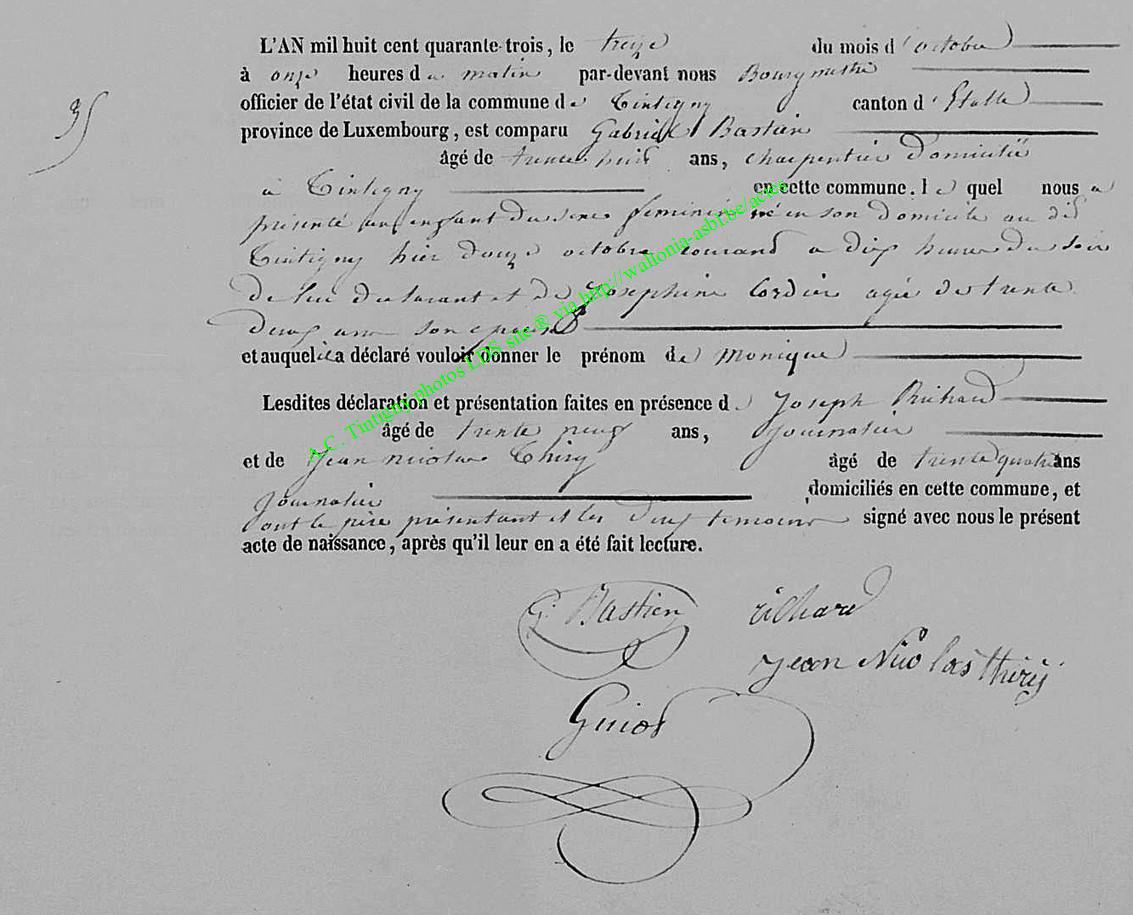 L'AN mil huit cent quarante-trois, le treize du mois d'octobre
à onze heures du matin par-devant nous Bourgmestre
officier de l'état civil de la commune de Tintigny canton d'Etalle
35
province de Luxembourg, est comparu Gabriel Bastien
âgé de trente huit ans, charpentier domicilié
à Tintigny en cette commune. le quel nous a
présenté un enfant du sexe feminin né en son domicile au dit
Tintigny hier douze octobre courant a dix heures du soir
de lui déclarant et de Josephine Cordier agée de trente
deux ans son epouse
et auquel il a déclaré vouloir donner le prénom de Monique
Lesdites déclaration et présentation faites en présence de Joseph Richard
âgé de trente neuf ans, journalier
et de Jean Nicolas Thiry âgé de trente quatre ans
journalier domiciliés en cette commune, et
ont le père présentant et les deux temoins signé avec nous le présent
acte de naissance, après qu'il leur en a été fait lecture.
G. Bastien richard
jean Nicolas thiry
Guiot
A.C. Tintigny photos LDS site ® via http://wallonia-asbl.be/actes